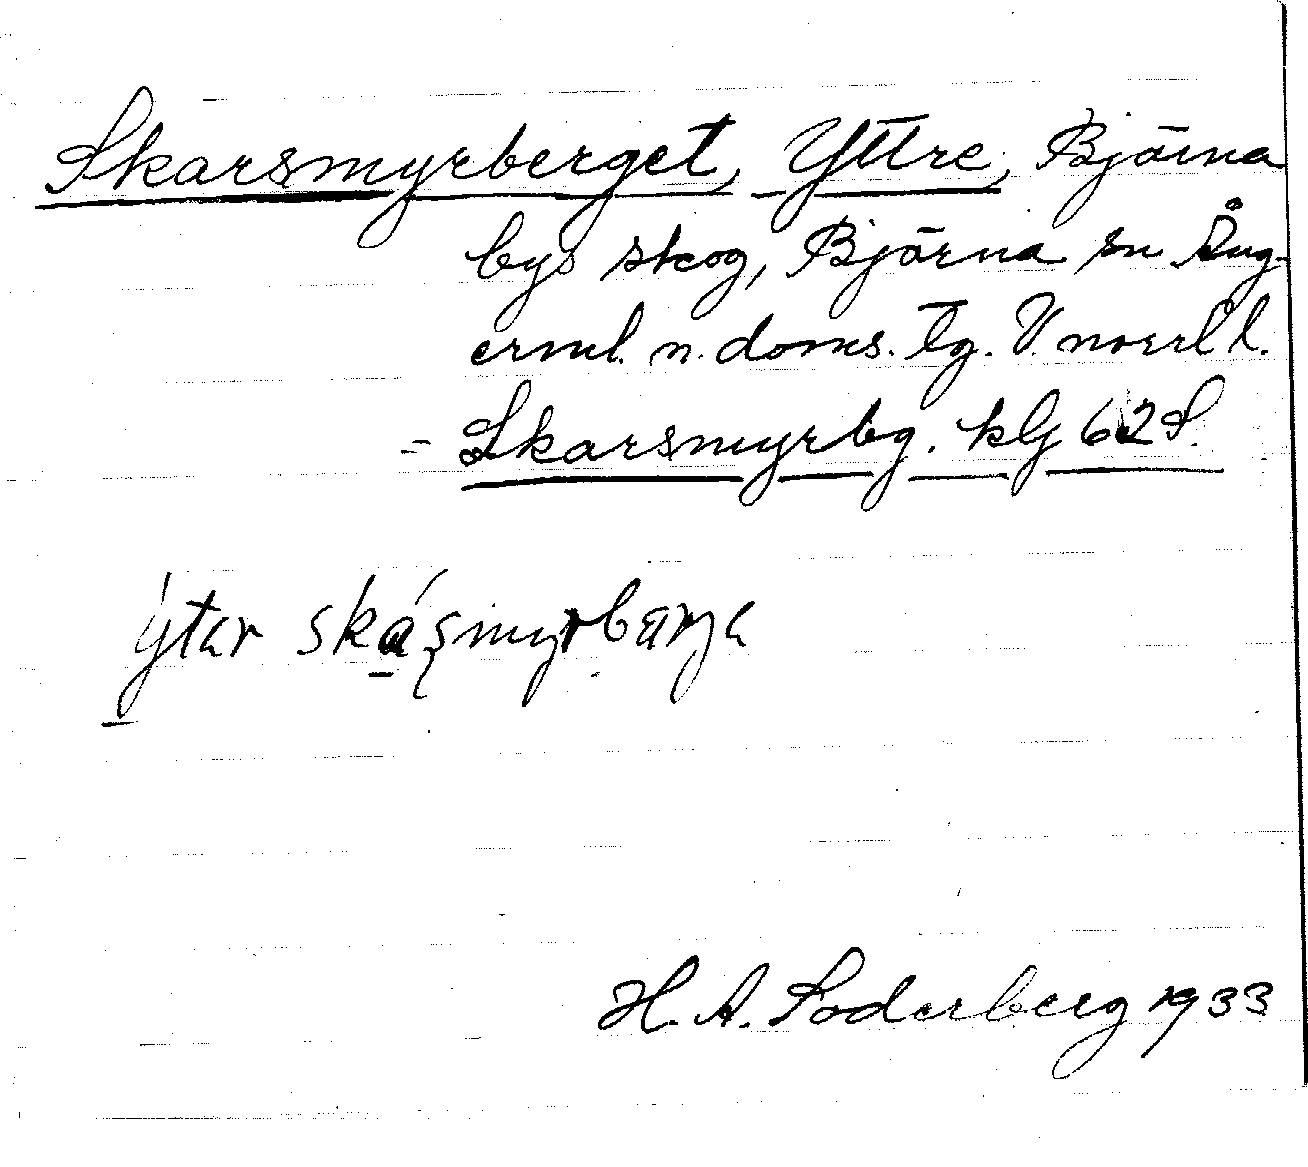 Skarsmyrberget, Yttre, Björna
bys skog, Björna sn Ång-
erml. n. doms. tg. V. norrl l.
= Skarsmyrbg. kg 62 S.
ýtər skáʂmyrbærjə
H. A. Soderberg 1933